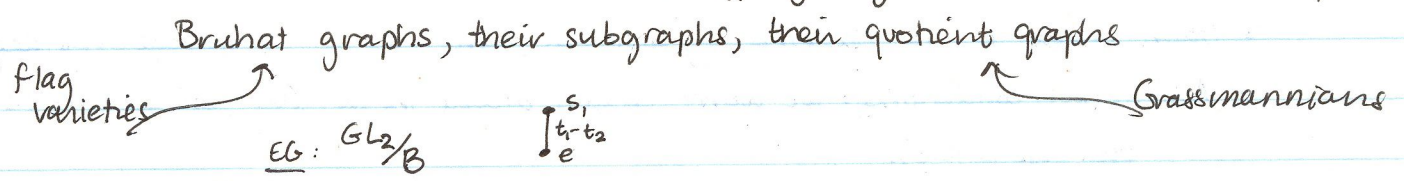 Bruhat graphs, their subgraphs, their quotient graphs
flag varieties
Grassmannians
EG: GL₂/B
s₁
t₁-t₂
e